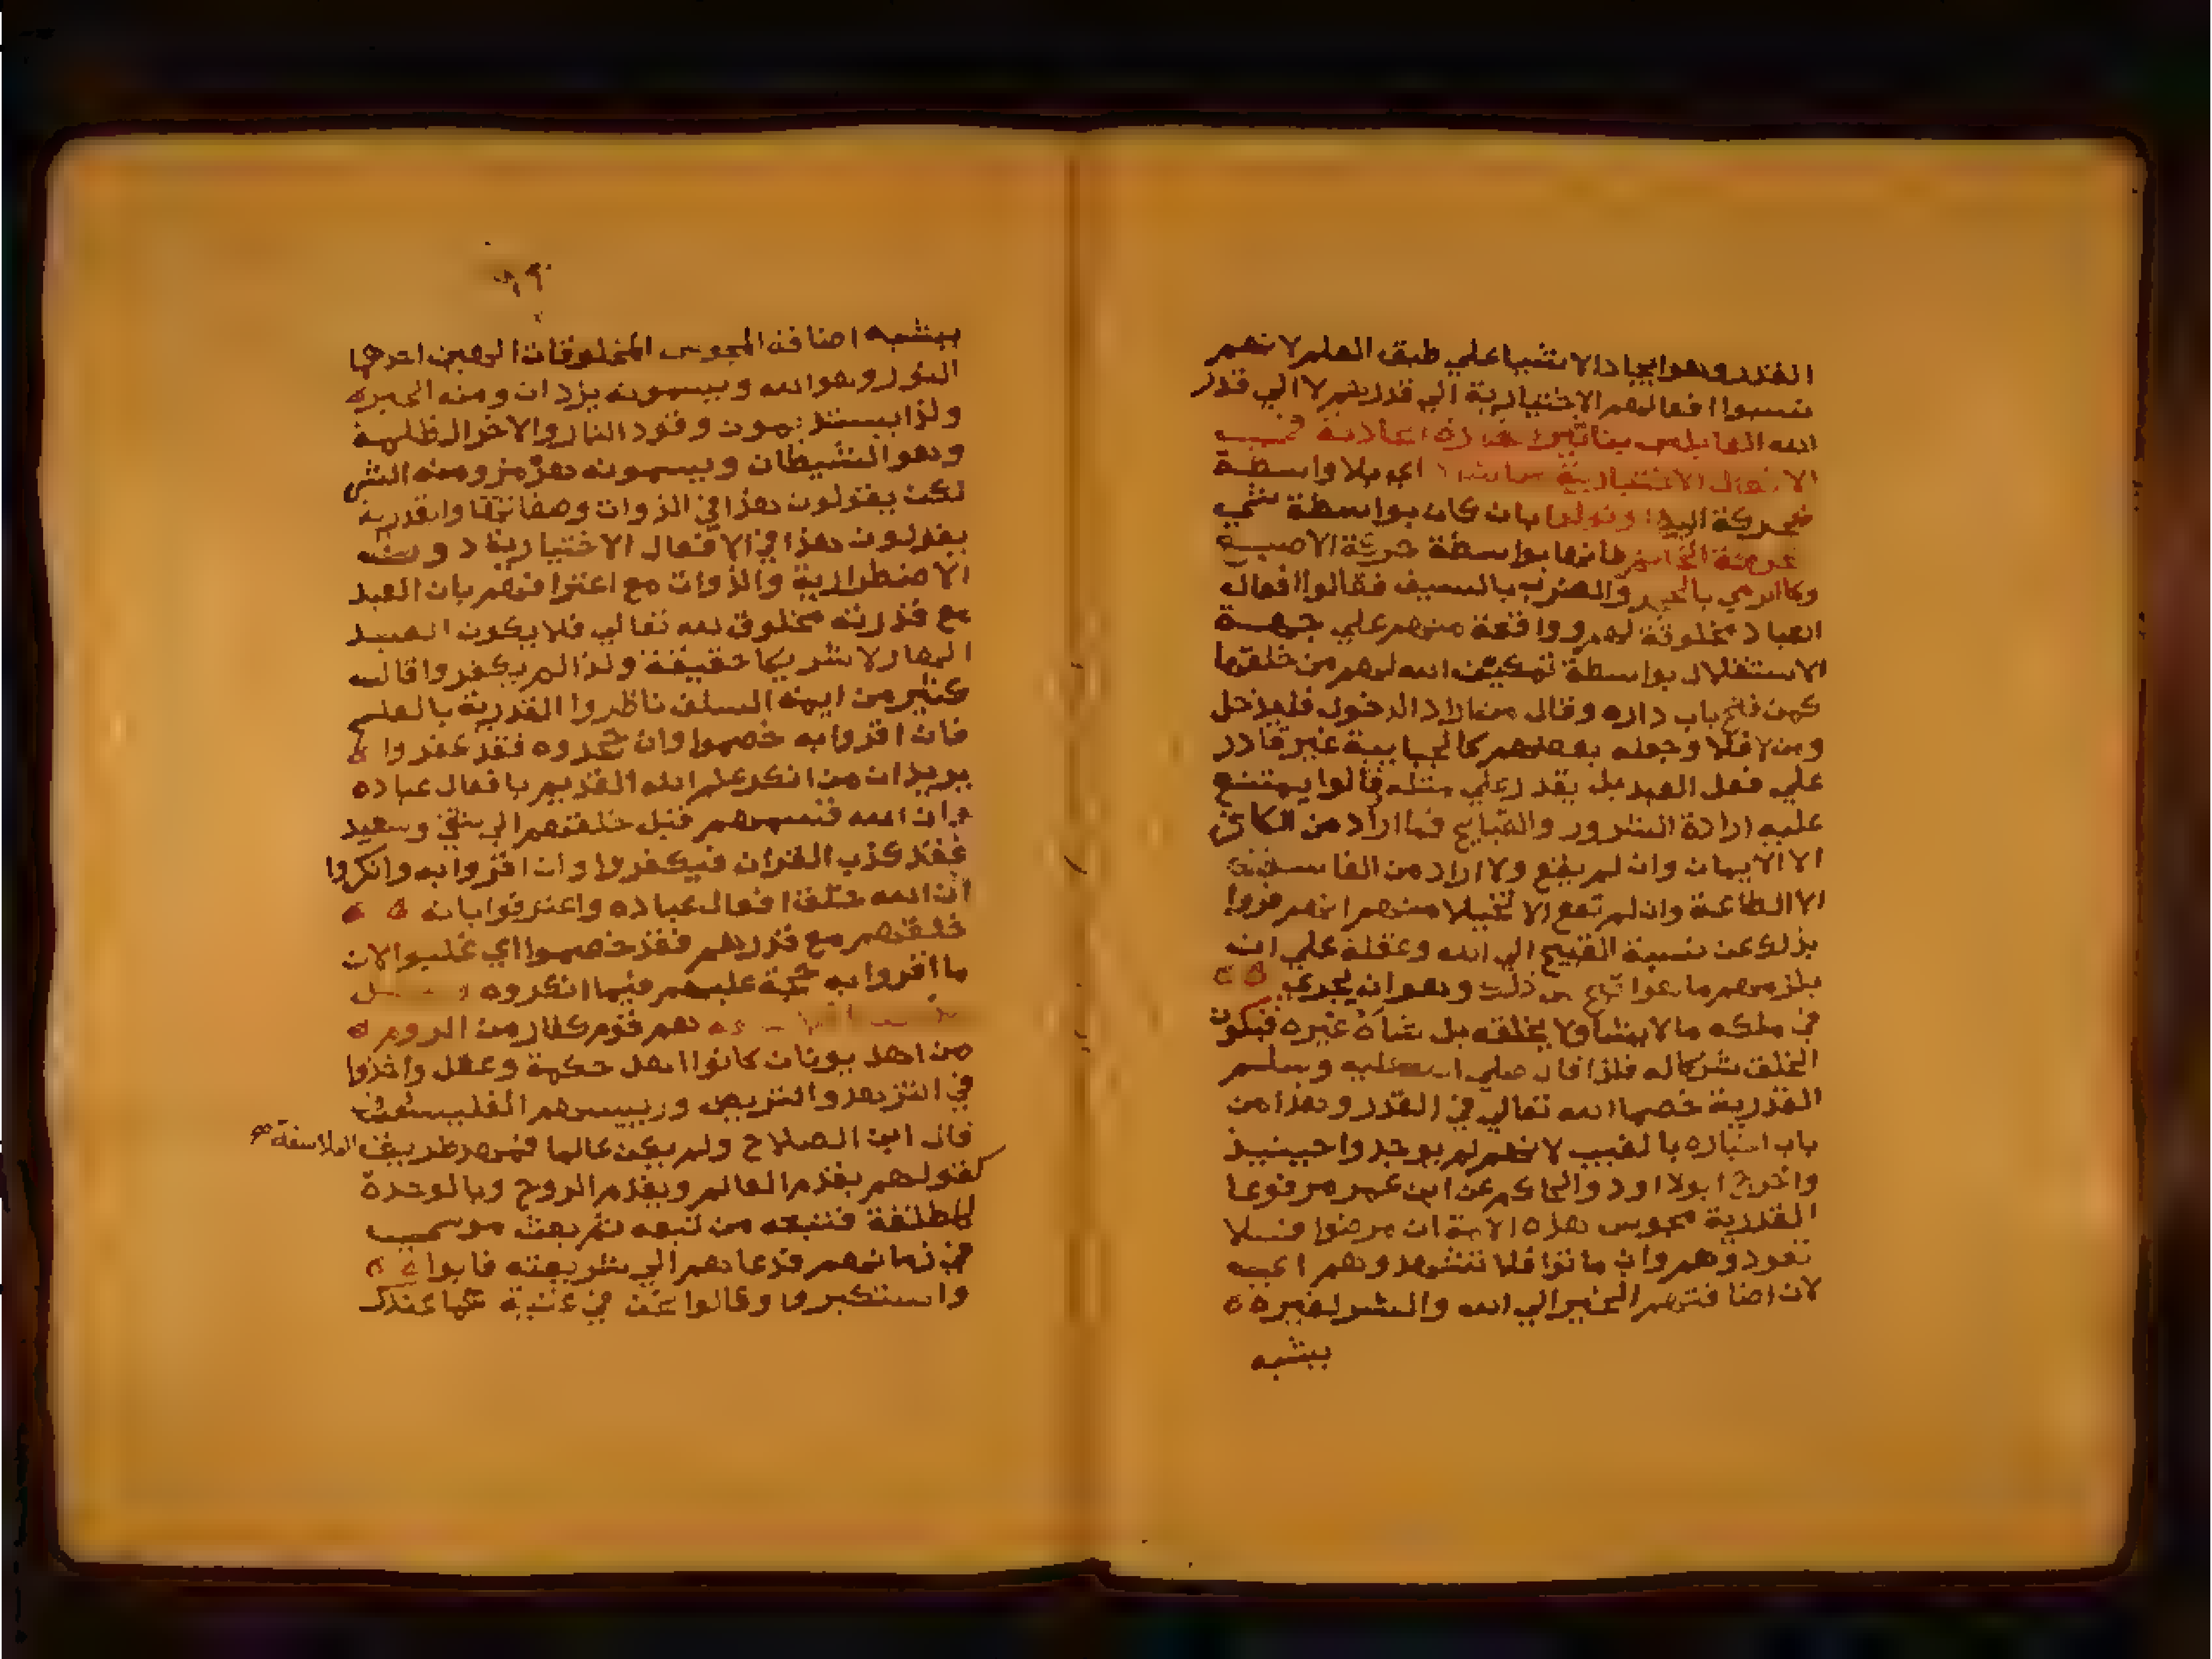 القدر وهو ايجاد الاشيا علي طبق العلم لانهم
نسبوا افعالهم الاختيارية الي قدرتهم لا الي قدر
الله القايلين بتاثير القدرة الحادثة في
الافعال الاختيارية مباشرة اي بلا واسطة
كحركة اليد او تولدا بان كان بواسطة شي
كحركة الخاتم فانها بواسطة حركة الاصبع
وكالرمي بالحجر والضرب بالسيف فقالوا افعال
العباد مخلوقة لهم وواقعة منهم علي جهة
الاستقلال بواسطة تمكين الله لهم من خلقها
كمن فتح باب داره وقال من اراد الدخول فليدخل
ومن لا فلا وجعله بعضهم كالجبايية غير قادر
علي فعل العبد بل يقدر علي مثله قالوا يمتنع
عليه ارادة الشرور والقبايح فما اراد من الكافر
الا الايمان وان لم يقع ولا اراد من الفاسق
الا الطاعة وان لم تقع الا تخيلا منهم انهم فروا
بذلك عن نسبة القبيح الي الله وغفلة علي انه
يلزمهم ما هو اقبح من ذلك وهو ان يجري
في ملكه ما لا يشا ولا يخلقه بل شاه غيره فيكون
الخلق شركا له فلذا قال صلي الله عليه وسلم
القدرية خصما الله تعالي في القدر وهذا من
باب اخباره بالغيب لانهم لم يوجدوا حينيذ
واخرج ابو داود والحاكم عن ابن عمر مرفوعا
القدرية مجوس هذه الامة ان مرضوا فلا
تعودوهم وان ماتوا فلا تشهدوهم اي
لان اضافتهم الخير الي الله والشر لغيره
يشبه
يشبه اضافة المجوس المخلوقات الي الهين احدهما
النور وهو الله ويسمونه يزدان ومنه الخير
ولذا يستديمون وقود النار والاخر الظلمة
وهو الشيطان ويسمونه هرمز ومنه الشر
لكن يقولون هذا في الذوات وصفاتها والقدرية
يقولون هذا في الافعال الاختيارية دون
الاضطرارية والذوات مع اعترافهم بان العبد
مع قدرته مخلوق لله تعالي فلا يكون العبد
الها ولا شريكا حقيقة ولذا لم يكفروا قال
كثير من ايمة السلف ناظروا القدرية بالعلم
فان اقروا به خصموا وان جحدوه فقد كفروا
يريد ان من انكر علم الله القديم بافعال عباده
وان الله قسمهم قبل خلقهم الي شقي وسعيد
فقد كذب القران فيكفر وان اقروا به وانكروا
ان الله خلق افعال عباده واعترفوا بانه
خلقهم مع قدرهم فقد خصموا اي غلبوا لان
ما اقروا به حجة عليهم فيما انكروه
هم قوم كفار من الروم
من اهل يونان كانوا اهل حكمة وعقل واخذوا
في التزهد والتريض ورييسهم الفليسوف
قال ابن الصلاح ولم يكن عالما فمهد طريق الفلاسفة صح
كقولهم بقدم العالم وبقدم الروح وبالوحدة
المطلقة فتبعه من تبعه ثم بعث موسي
في زمانهم فدعاهم الي شريعته فابوا
واستكبروا وقالوا نحن في غنية عما عندك